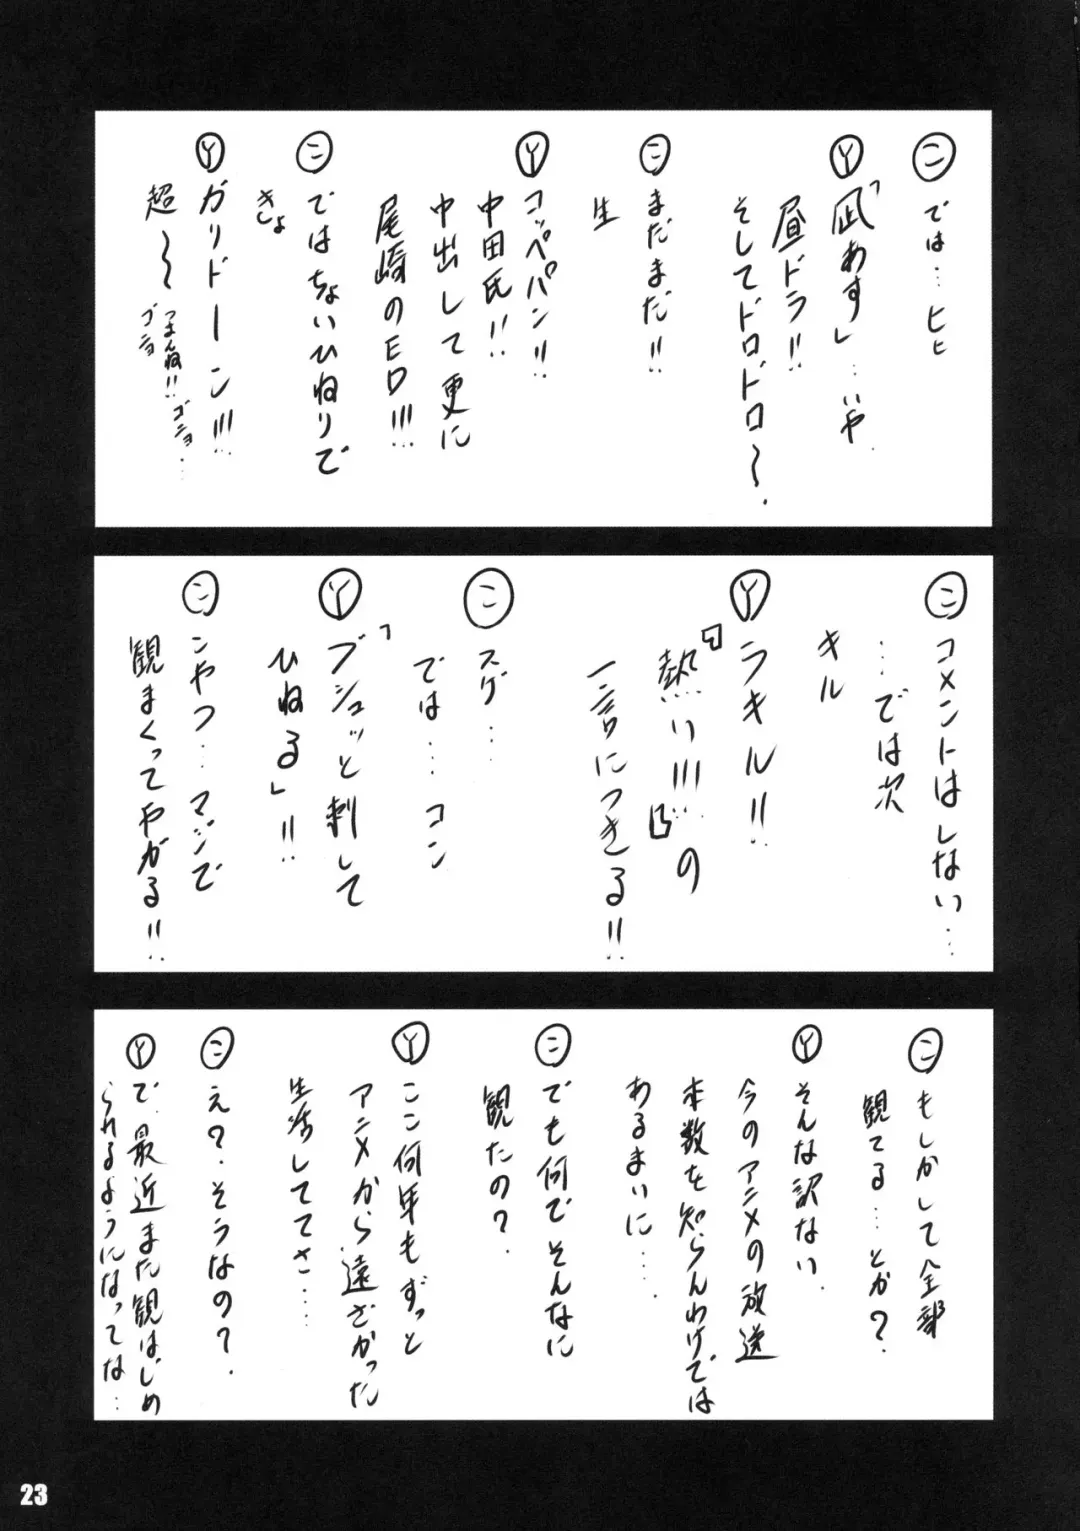 こ
では…ヒヒ
Y
「凪あす」…いや
昼ドラ!!
そしてドロドロ〜.
こ
まだまだ!!
生
Y
コッペパン!!
中田氏!!
中出して更に
尾崎のED!!!
こ
ではちょいひねりで
きしょ
Y
ガリドーン!!!
超〜
つまんね!!ゴニョ…
ゴニョ
こ
コメントはしない…
…では次
キル
Y
ラキル!!
『熱い!!!』の
一言につきる!!
こ
スゲ…
では…コン
Y
「ブシュッと刺して
ひねる」!!
こ
こやつ…マジで
観まくってやがる!!
こ
もしかして全部
観てる…とか?
Y
そんな訳ない
今のアニメの放送
本数を知らんわけでは
あるまいに…
こ
でも何でそんなに
観たの?
Y
ここ何年もずっと
アニメから遠ざかった
生活しててさ…
こ
え?そうなの?
Y
で最近また観はじめ
られるようになってな…
23